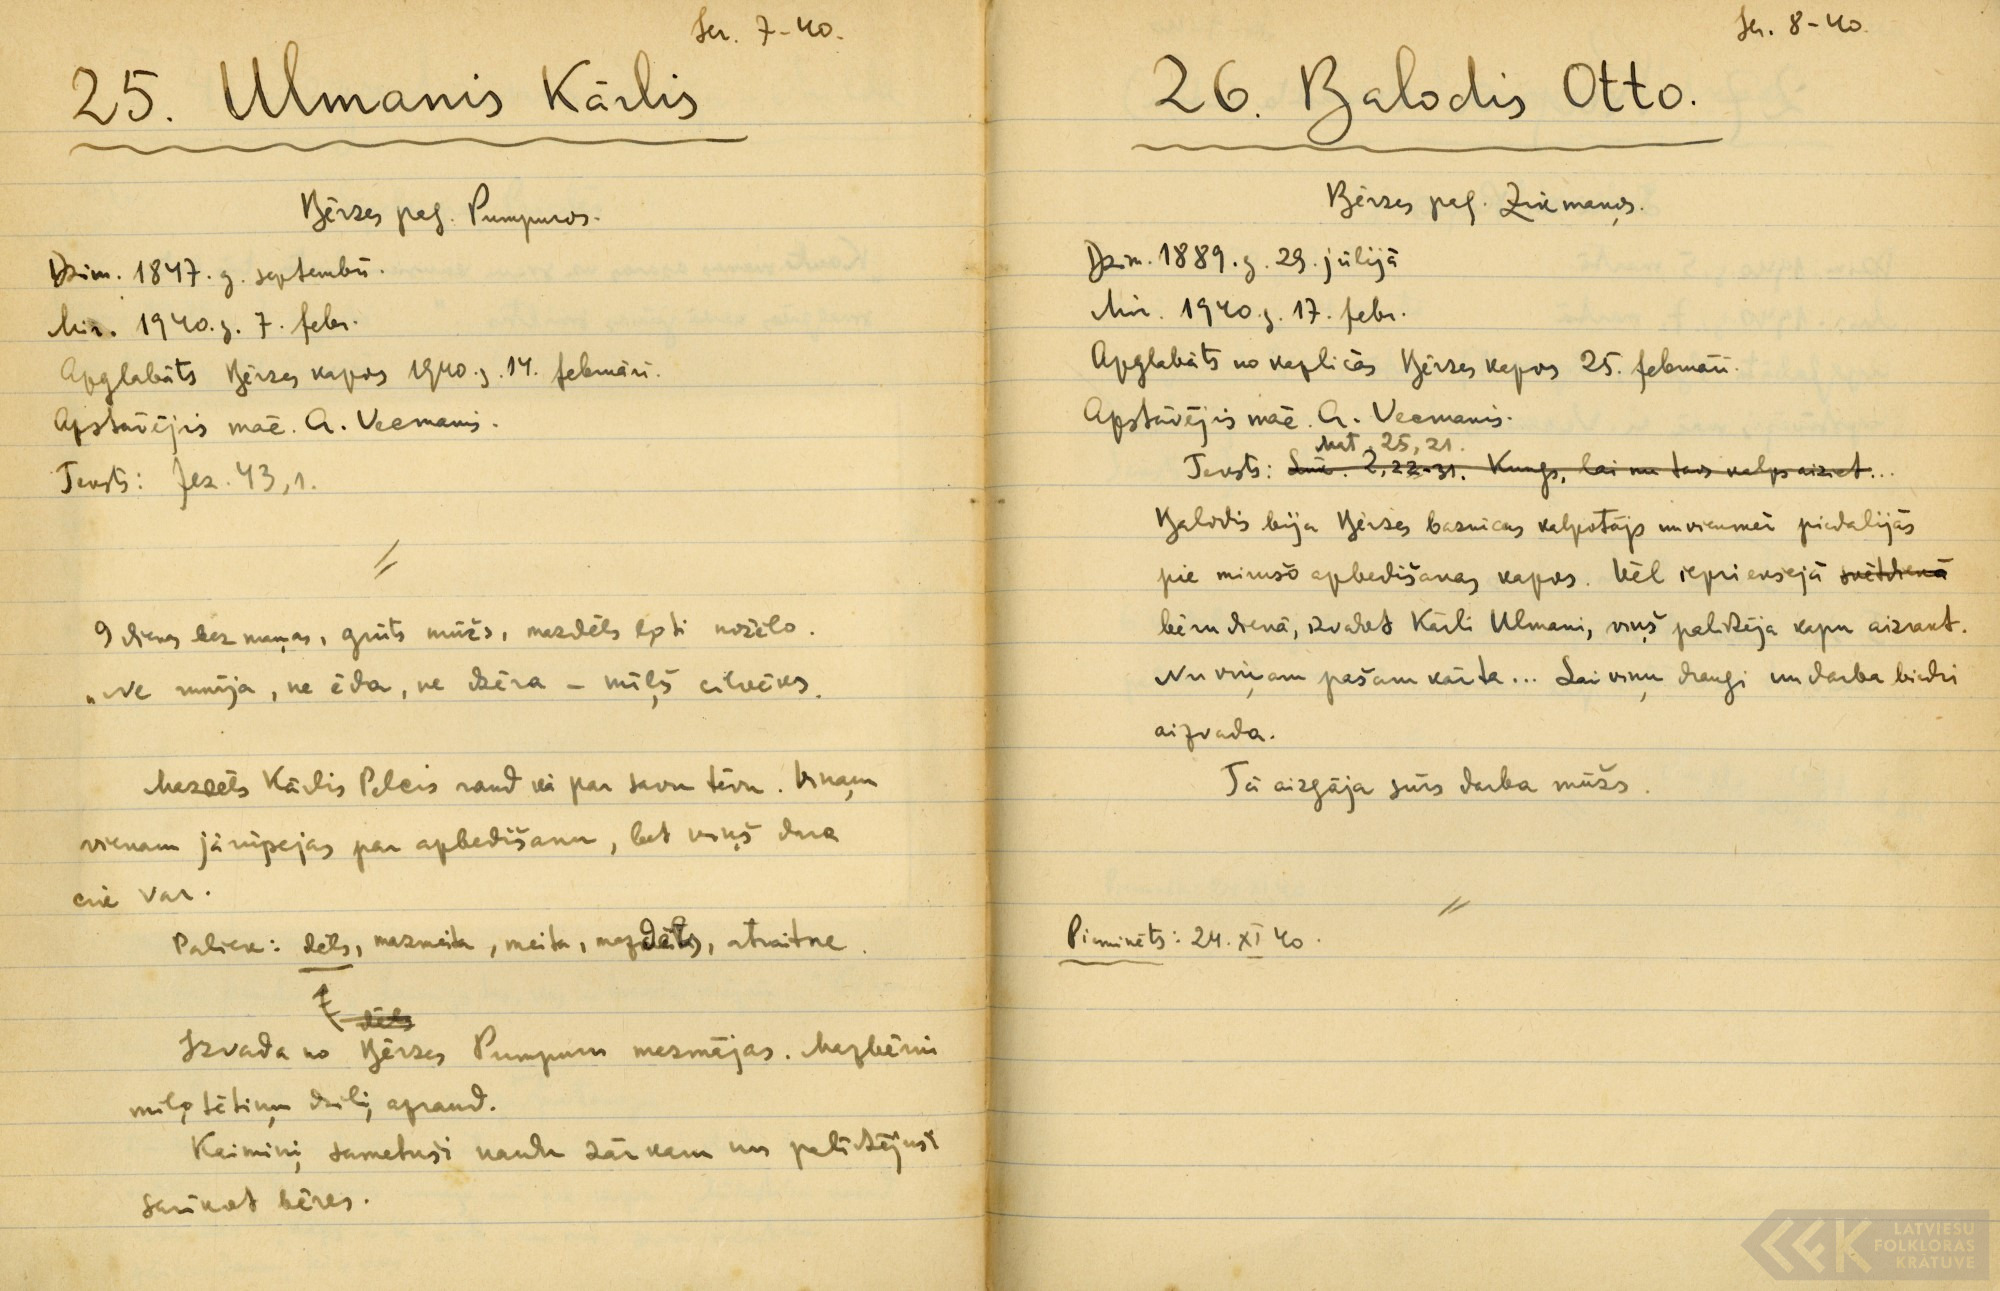 Ser. 7-40.
25. Ulmanis Kārlis
Bērzes pag. Pumpuros.
Dzim. 1847. g. septembrī.
Mir. 1940. g. 7. febr.
Apglabāts Bērzes kapos 1940. g. 14. februārī.
Apstāvējis māc. A. Vecmanis.
Teksts: Jez. 43,1.
9 dienas bez maņas, grūts mūžs, mazdēls ļoti nožēlo.
"Ne runāja, ne ēda, ne dzēra – mīļš cilvēks.
Mazdēls Kārlis Pelcis raud kā par savu tēvu. Viņam
vienam jārūpejas par apbedīšanu, bet viņš dara
cik var.
Paliek: dēls, mazmeita, meita, mazdēls, atraitne.
dēls
Izvada no Bērzes Pumpuru mazmājas. Mazbērni
mīļo tētiņu dziļi apraud.
Kaimiņi sametuši naudu zārkam un palīdzējuši
sarīkot bēres.
Ser. 8-40.
26. Balodis Otto.
Bērzes pag. Zīlemaņos.
Dzim. 1889. g. 29. jūlijā
Mir. 1940. g. 17. febr.
Apglabāts no kapličas Bērzes kapos 25. februārī.
Apstāvējis māc. A. Vecmanis.
Mat. 25, 21.
Teksts: Lūk. 2, 22-31. Kungs, lai nu tavs kalps aiziet...
Balodis bija Bērzes baznīcas kalpotājs un vienmēr piedalijās
pie mirušo apbedīšanas kapos. Vēl iepriekšejā svētdienā
bēru dienā, izvadot Kārli Ulmani, viņš palīdzēja kapu aizrakt.
Nu viņam pašam kārta... Lai viņu draugi un darba biedri
aizvada.
Tā aizgāja sūrs darba mūžs.
Pieminēts: 24. XI 40.
LATVIEŠU
FOLKLORAS
KRĀTUVE